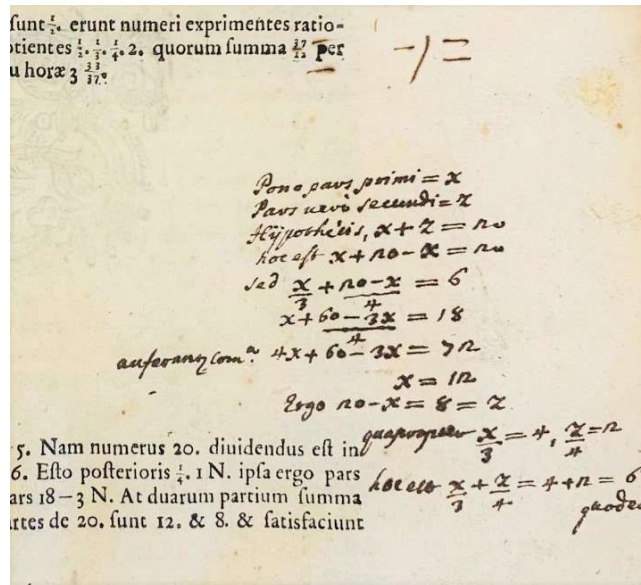 sunt 1/2. erunt numeri exprimentes ratio-
tientes 1/2. 1/3. 1/4. 2. quorum summa 37/12 per
u horæ 3 33/37.
-1 =
Pono pars primi = x
Pars verò secundi = z
Hÿpothesis, x + z = 20
hoc est x + 20 - x = 20
sed x/3 + 20 - x/4 = 6
x + 60 - 3x/4 = 18
4x + 60 - 3x = 72
x = 12
Ergo 20 - x = 8 = z
quapropter x/3 = 4, z/4 = 2
hoc est x/3 + z/4 = 4 + 2 = 6
5. Nam numerus 20. diuidendus est in
6. Esto posterioris 1/4. 1 N. ipsa ergo pars
ars 18 — 3 N. At duarum partium summa
rtes de 20. sunt 12. & 8. & satisfaciunt